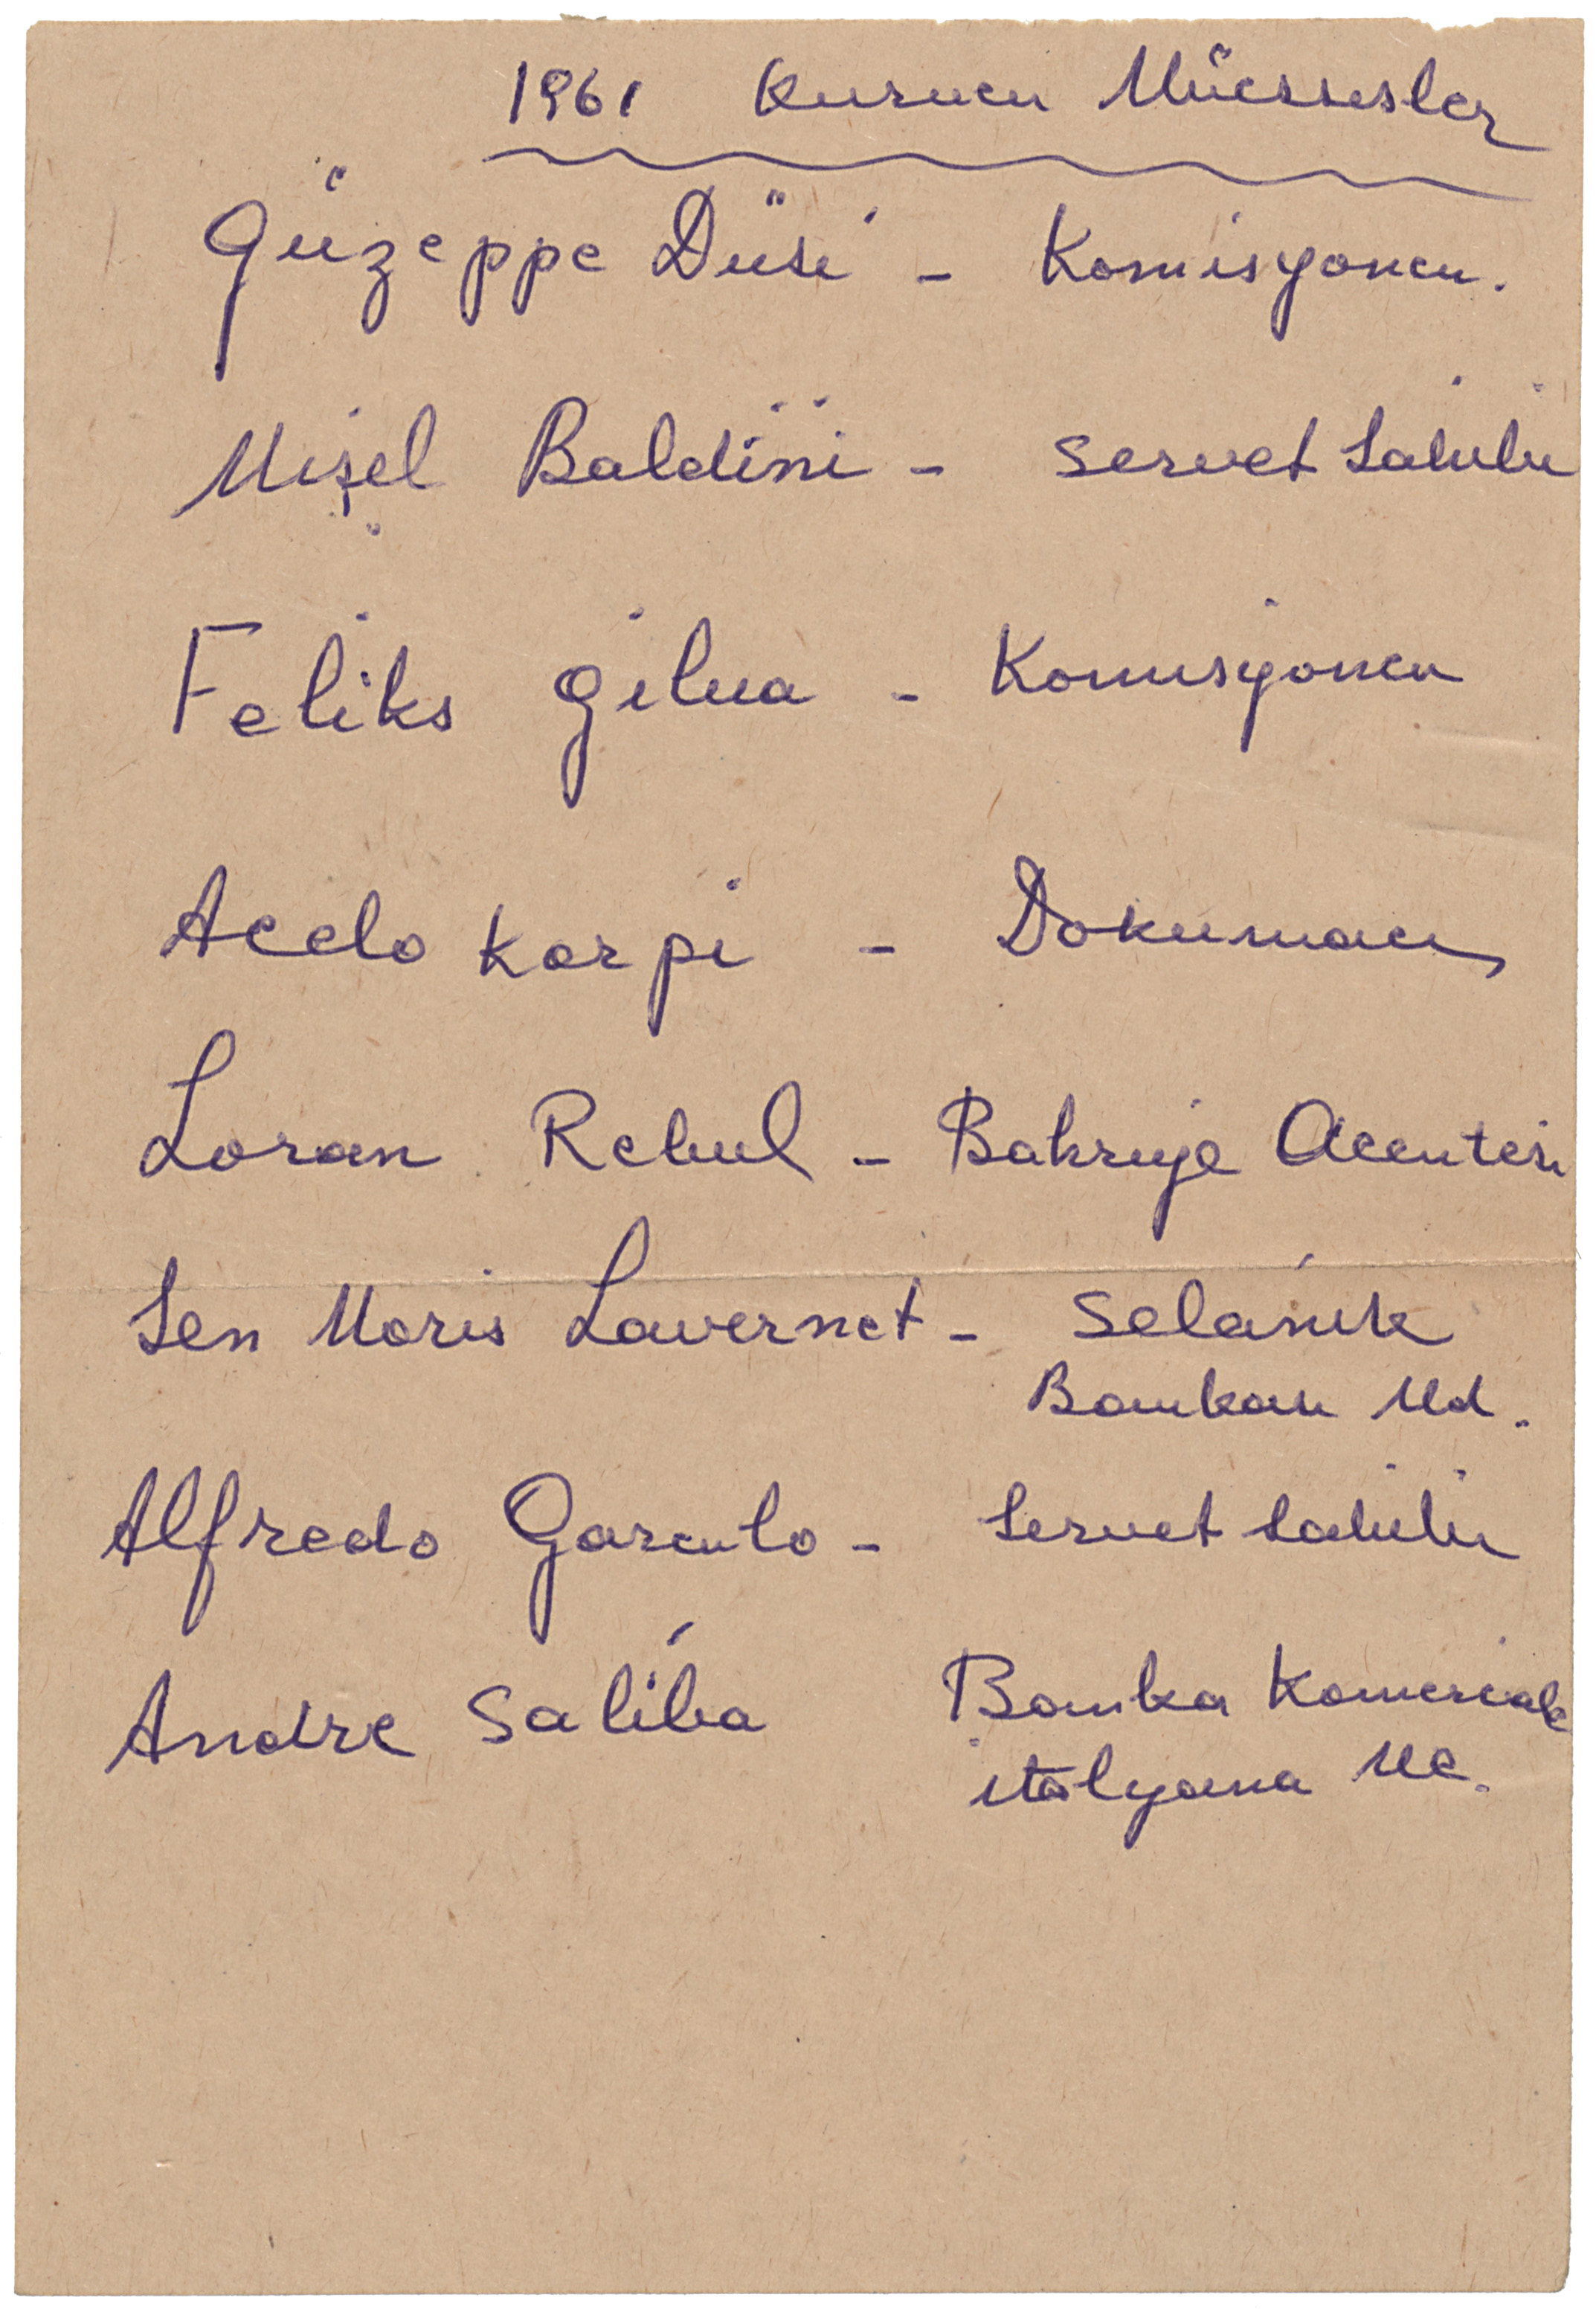 1961 Kurucu Müessesler
Güzeppe Düsi - Komisyoncu.
Mişel Baldini - Servet Sahibi
Feliks Gilua - Komisyoncu
Acelo Karpi - Dokumacı
Loran Rebul - Bahriye Acentesi
Sen Moris Lavernet - Selanik
Bankası Md.
Alfredo Garento - Servet Sahibi
Andre Saliba Banka Komerciale
italyana Md.